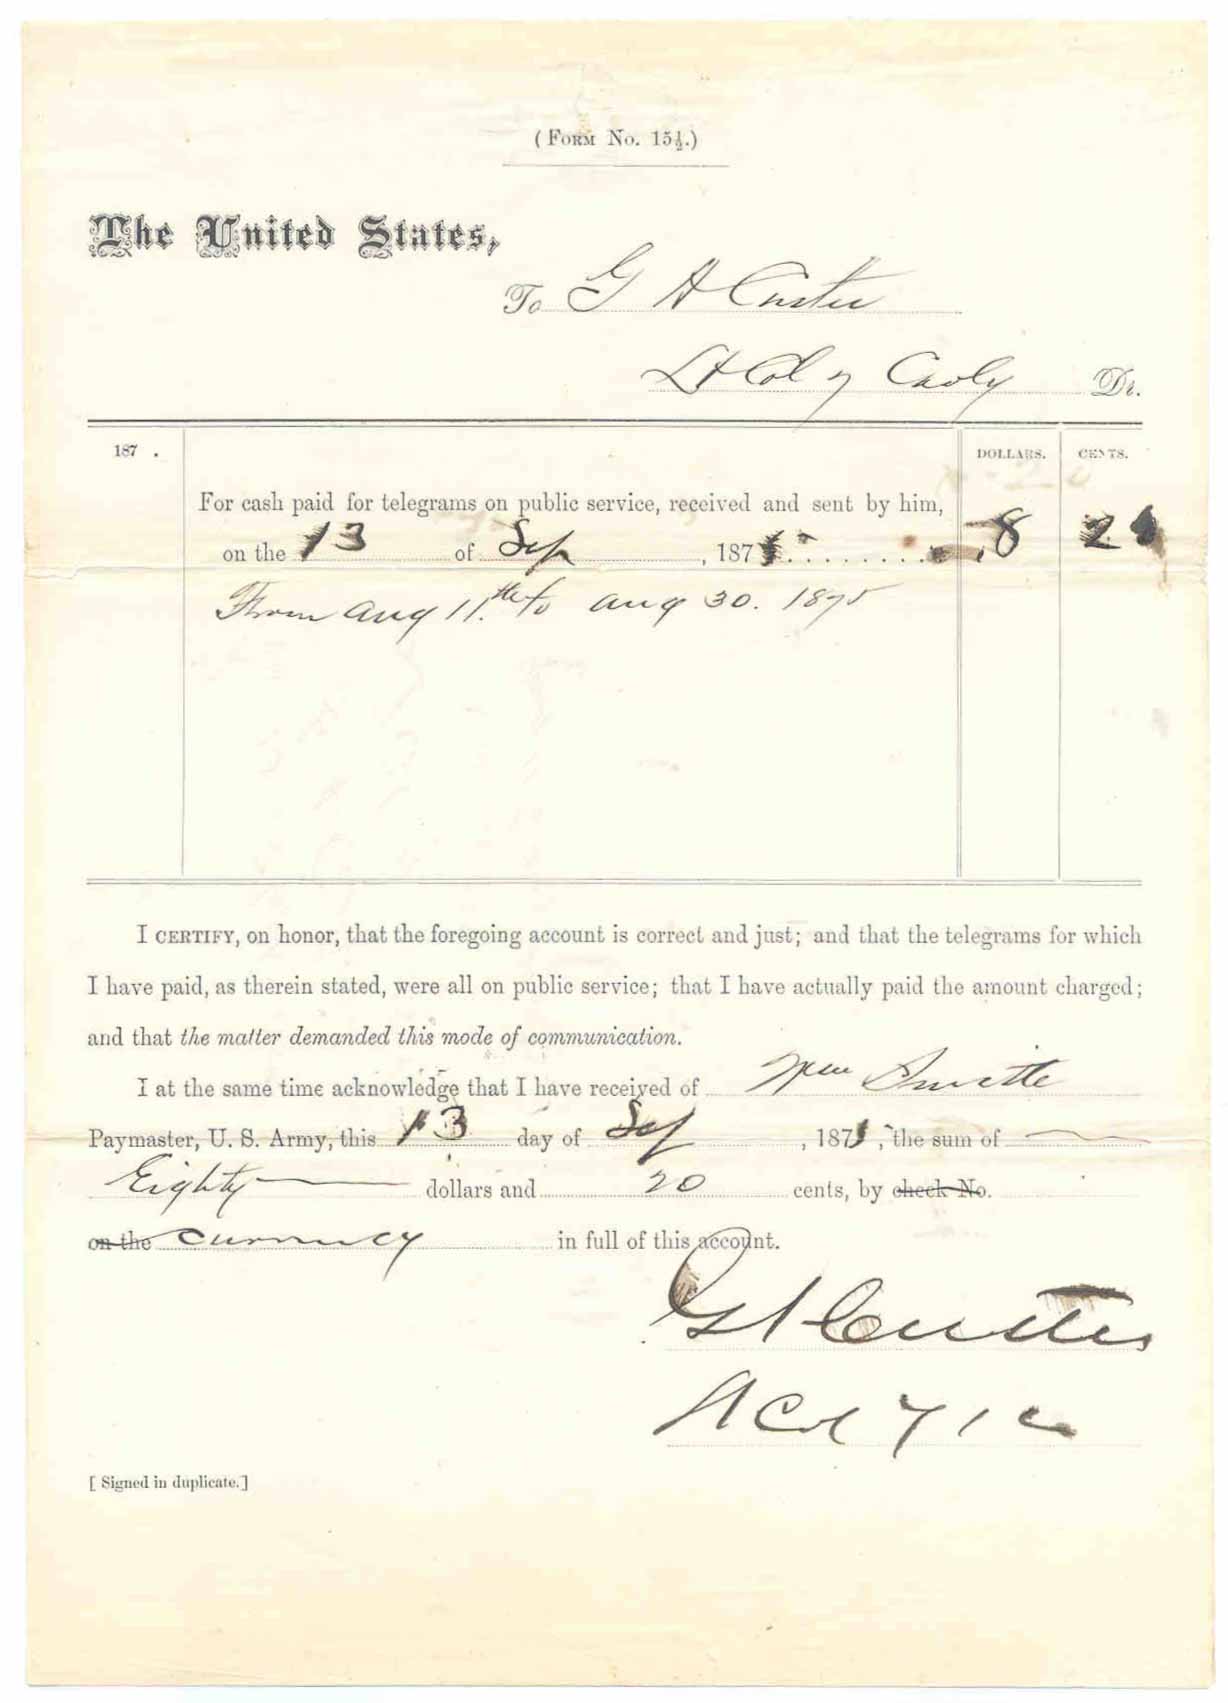 (FORM No. 15½.)
The United States,
To G A Custer
Lt Col 7 Cavly Dr.
187 . DOLLARS. CENTS.
For cash paid for telegrams on public service, received and sent by him,
on the 13 of Sep , 187 . . . . . . . . 8 2
From Aug 11.th to Aug 30. 1875
I CERTIFY, on honor, that the foregoing account is correct and just; and that the telegrams for which
I have paid, as therein stated, were all on public service; that I have actually paid the amount charged;
and that the matter demanded this mode of communication.
I at the same time acknowledge that I have received of Wm Smith
Paymaster, U. S. Army, this 13 day of Sep , 187 , the sum of
Eighty dollars and 20 cents, by check No.
on the currency in full of this account.
GACuster
Col 7
[Signed in duplicate.]